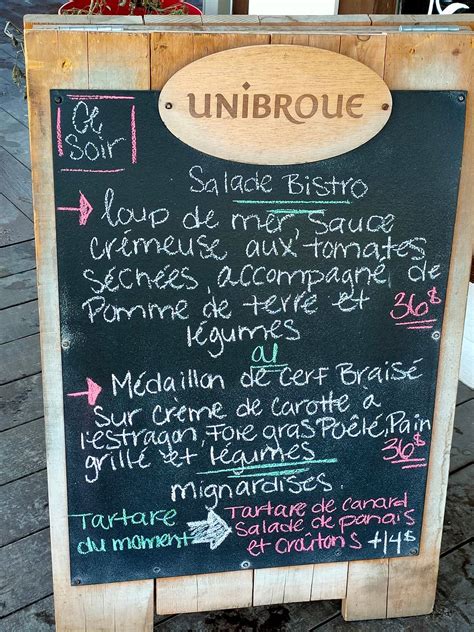 UNIBROUE
Ce
Soir
Salade Bistro
loup de mer, sauce
crémeuse aux tomates
séchées, accompagné de
Pomme de terre et 36$
légumes
ou
Médaillon de Cerf Braisé
sur crème de carotte a
l'estragon, Foie gras Poêlé, Pain
grillé et légumes 36$
mignardises
Tartare
du moment
Tartare de canard
Salade de panais
et croûtons +14$